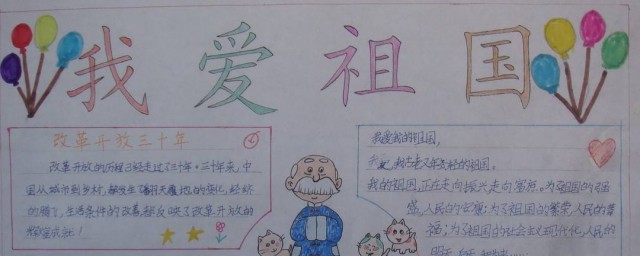 我爱祖国
改革开放三十年
改革开放的历程已经走过了三十年。三十年来,中
国从城市到乡村,都发生了翻天覆地的变化,经济
的腾飞,生活条件的改善,都反映了改革开放的
辉煌成就!
我爱我的祖国,
我的祖国,正在走向振兴走向富强。为了祖国的强
盛,人民的安康;为了祖国的繁荣,人民的幸
福;为了祖国的社会主义现代化,人民的
明天